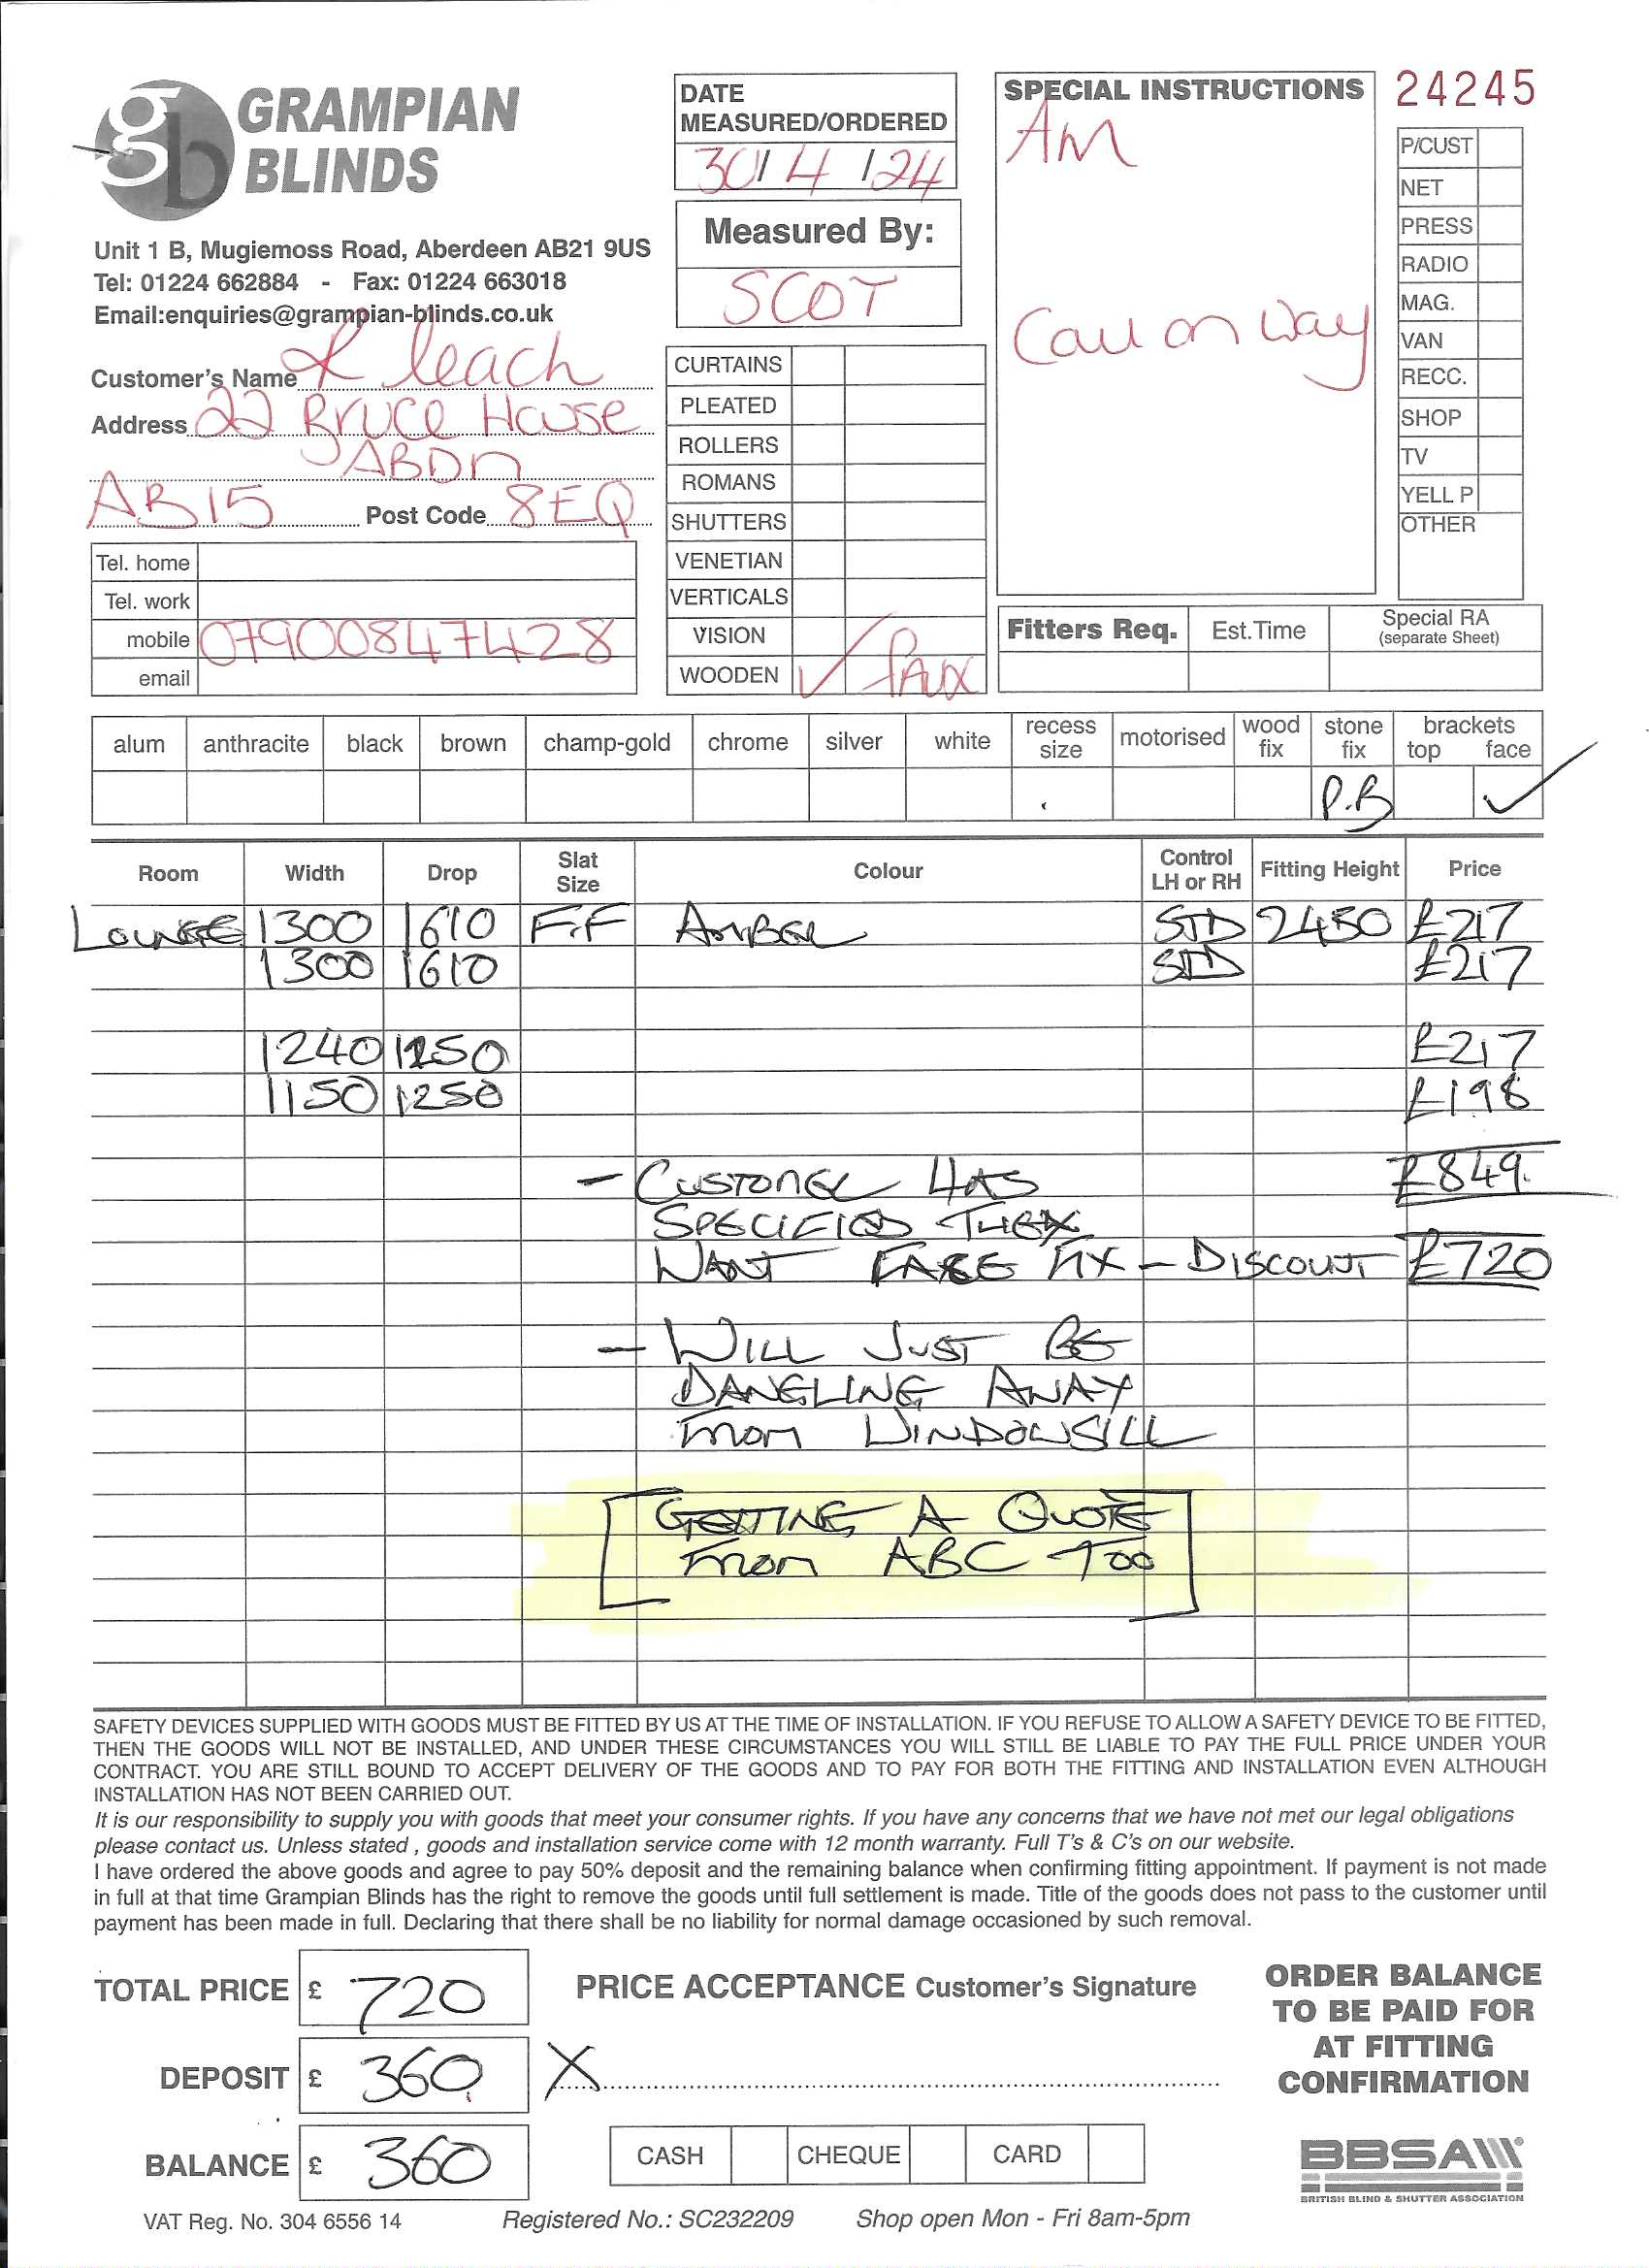 GRAMPIAN
BLINDS
Unit 1 B, Mugiemoss Road, Aberdeen AB21 9US
Tel: 01224 662884 - Fax: 01224 663018
Email:enquiries@grampian-blinds.co.uk
DATE
MEASURED/ORDERED
30/4/24
Measured By:
SCOT
SPECIAL INSTRUCTIONS
AM
Call on way
24245
P/CUST
NET
PRESS
RADIO
MAG.
VAN
RECC.
SHOP
TV
YELL P
OTHER
Customer's Name leach
Address 22 Bruce House
ABDN
AB15 Post Code 8EQ
Tel. home
Tel. work
mobile 07900847428
email
CURTAINS
PLEATED
ROLLERS
ROMANS
SHUTTERS
VENETIAN
VERTICALS
VISION
WOODEN ✓ FAUX
Fitters Req. Est.Time Special RA
(separate Sheet)
alum anthracite black brown champ-gold chrome silver white recess size motorised wood fix stone fix brackets top face
P.B ✓
Room Width Drop Slat Size Colour Control LH or RH Fitting Height Price
LOUNGE 1300 1610 F.F AMBER STD 2450 £217
1300 1610 STD £217
1240 1250 £217
1150 1250 £198
- CUSTOMER HAS £849.
SPECIFIED THEY
WANT FACE FIX - DISCOUNT £720
- WILL JUST BE
DANGLING AWAY
FROM WINDOWSILL
[GETTING A QUOTE
FROM ABC TOO]
SAFETY DEVICES SUPPLIED WITH GOODS MUST BE FITTED BY US AT THE TIME OF INSTALLATION. IF YOU REFUSE TO ALLOW A SAFETY DEVICE TO BE FITTED,
THEN THE GOODS WILL NOT BE INSTALLED, AND UNDER THESE CIRCUMSTANCES YOU WILL STILL BE LIABLE TO PAY THE FULL PRICE UNDER YOUR
CONTRACT. YOU ARE STILL BOUND TO ACCEPT DELIVERY OF THE GOODS AND TO PAY FOR BOTH THE FITTING AND INSTALLATION EVEN ALTHOUGH
INSTALLATION HAS NOT BEEN CARRIED OUT.
It is our responsibility to supply you with goods that meet your consumer rights. If you have any concerns that we have not met our legal obligations
please contact us. Unless stated , goods and installation service come with 12 month warranty. Full T's & C's on our website.
I have ordered the above goods and agree to pay 50% deposit and the remaining balance when confirming fitting appointment. If payment is not made
in full at that time Grampian Blinds has the right to remove the goods until full settlement is made. Title of the goods does not pass to the customer until
payment has been made in full. Declaring that there shall be no liability for normal damage occasioned by such removal.
TOTAL PRICE £ 720
PRICE ACCEPTANCE Customer's Signature
DEPOSIT £ 360
X
BALANCE £ 360
CASH CHEQUE CARD
ORDER BALANCE
TO BE PAID FOR
AT FITTING
CONFIRMATION
BBSA
BRITISH BLIND & SHUTTER ASSOCIATION
VAT Reg. No. 304 6556 14 Registered No.: SC232209 Shop open Mon - Fri 8am-5pm